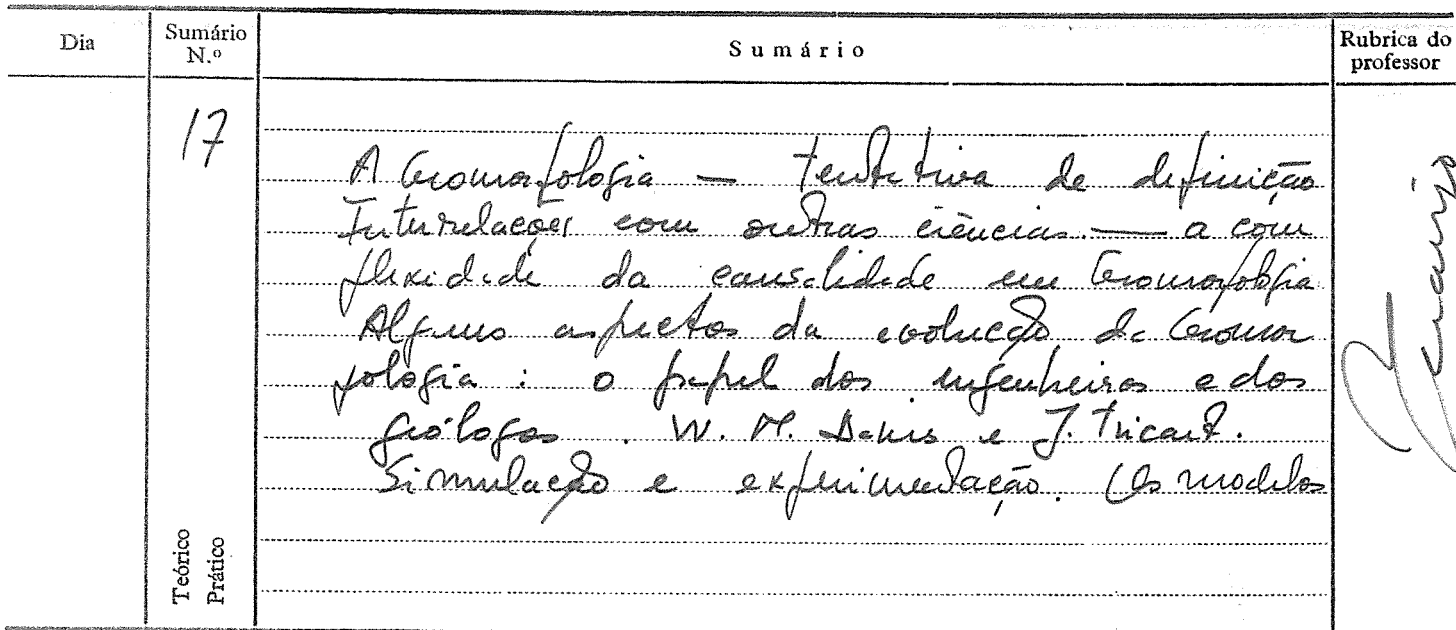 Dia
Sumário N.º
Sumário
Rubrica do professor
17
A Geomorfologia — tentativa de definição
Interrelações com outras ciências. — a com
plexidade da causalidade em Geomorfologia
Alguns aspectos da evolução da Geomor
fologia : o papel dos engenheiros e dos
geólogos . W. M. Davis e J. Tricart.
Simulação e experimentação. (Os modelos
Teórico
Prático